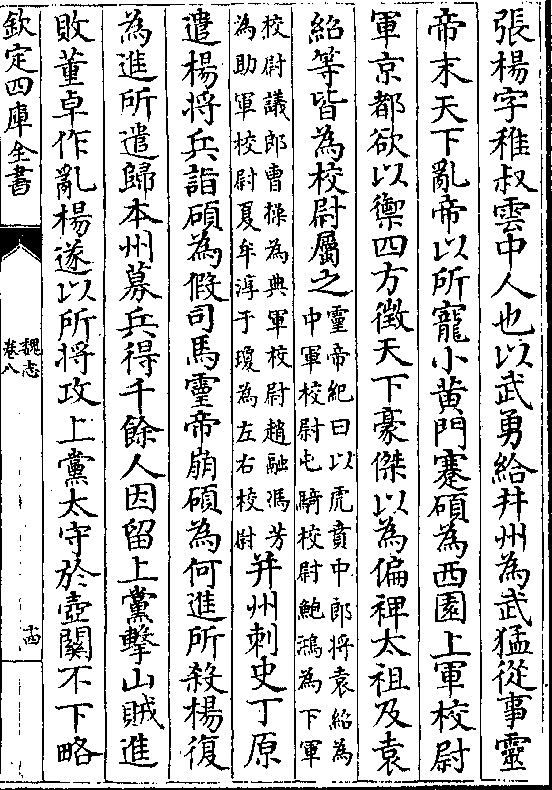 張楊字稚叔雲中人也以武勇給并州為武猛從事靈
帝末天下亂帝以所寵小黄門蹇碩為西園上軍校尉
軍京都欲以禦四方徵天下豪傑以為偏裨太祖及袁
紹等皆為校尉屬之
靈帝紀曰以虎賁中郎将袁紹為
中軍校尉屯騎校尉鮑鴻為下軍
校尉議郎曹操為典軍校尉趙融馮芳
為助軍校尉夏牟淳于瓊為左右校尉
并州刺史丁原
遣楊将兵詣碩為假司馬靈帝崩碩為何進所殺楊復
為進所遣歸本州募兵得千餘人因留上黨擊山賊進
敗董卓作亂楊遂以所将攻上黨太守於壺關不下略
欽定四庫全書
魏志
卷八
十四